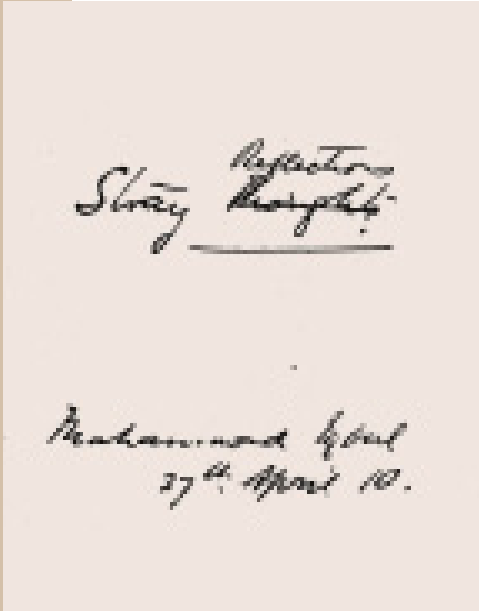 Reflections
Stray Thoughts
Muhammad Iqbal
27th April 10.